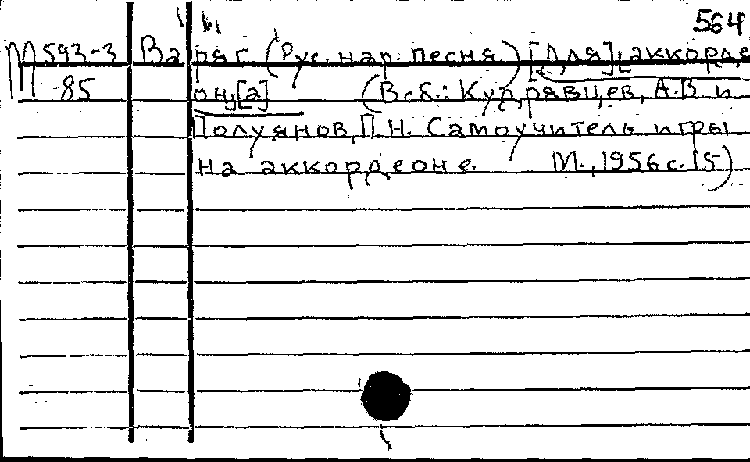 564
М593-3 Варяг. (Рус. нар. песня.) [Для] аккорде-
-85 он[а] (В сб.: Кудрявцев, А.В. и
Полуянов, П.Н. Самоучитель игры
на аккордеоне. М., 1956 с. 15)